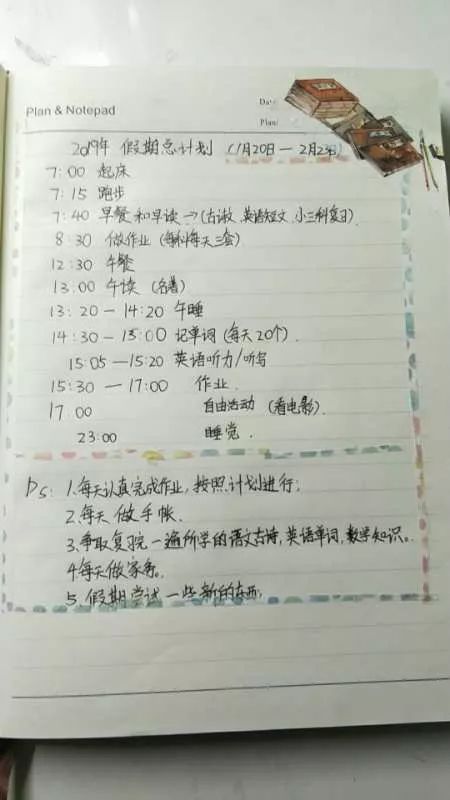 Plan & Notepad
Plan/
2019年 假期总计划 (1月20日 — 2月23日)
7:00 起床
7:15 跑步
7:40 早餐和早读→(古诗文,英语短文,小三科复习)
8:30 做作业 (每科每天三套)
12:30 午餐
13.00 午读 (名著)
13:20 — 14:20 午睡
14:30 — 15:00 记单词 (每天20个).
15:05 — 15:20 英语听力/听写
15:30 — 17:00 作业.
17.00 自由活动 (看电影).
23:00 睡觉.
Ps: 1.每天认真完成作业,按照计划进行;
2.每天做手帐.
3.争取复习完一遍所学的语文古诗,英语单词,数学知识。
4.每天做家务。
5.假期尝试一些新的东西;